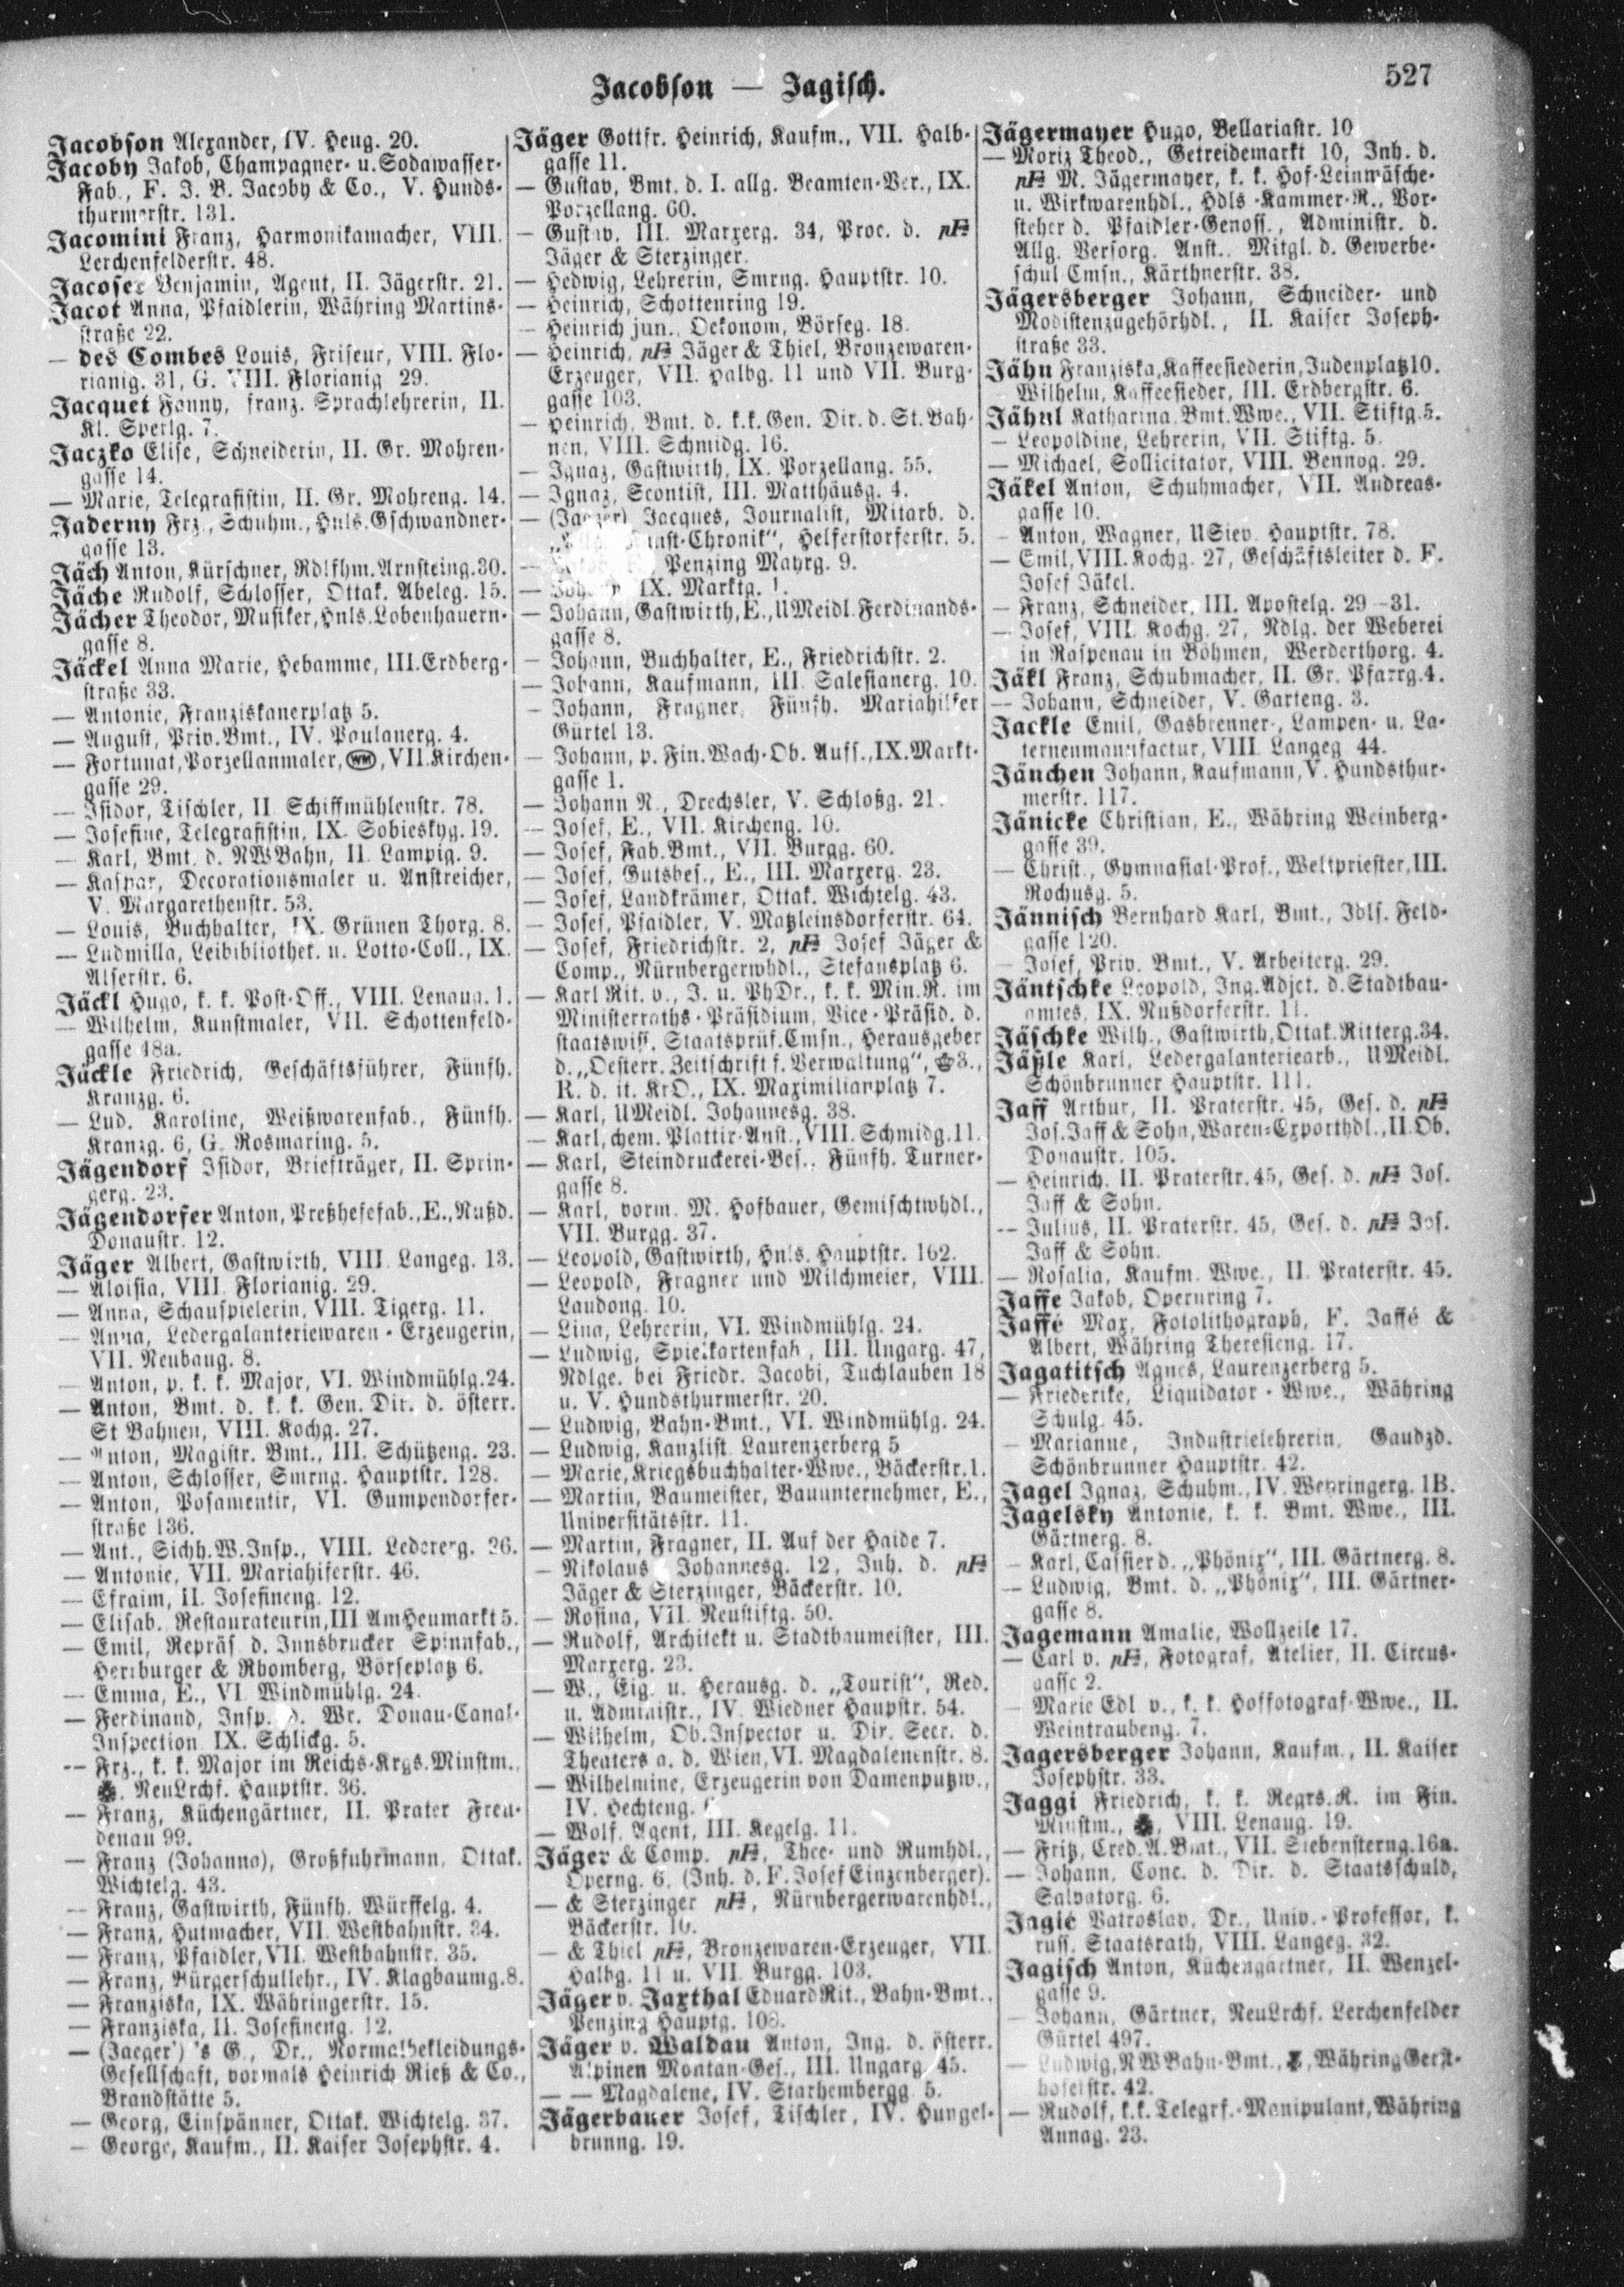 Jacobson — Jagisch.
527
Jacobson Alexander, IV. Heug. 20.
Jacoby Jakob, Champagner- u. Sodawasser-
Fab., F. J. B. Jacoby & Co., V. Hunds-
thurmerstr. 131.
Jacomini Franz, Harmonikamacher, VIII.
Lerchenfelderstr. 48.
Jacoser Benjamin, Agent, II. Jägerstr. 21.
Jacot Anna, Pfaidlerin, Währing Martins-
straße 22.
— des Combes Louis, Friseur, VIII. Flo-
rianig. 31, G. VIII. Florianig 29.
Jacquet Fanny, franz. Sprachlehrerin, II.
Kl. Sperlg. 7.
Jaczko Elise, Schneiderin, II. Gr. Mohren-
gasse 14.
— Marie, Telegrafistin, II. Gr. Mohreng. 14.
Jaderny Frz., Schuhm., Hnls. Gschwandner-
gasse 13.
Jäch Anton, Kürschner, Rdlfhm. Arnsteing. 30.
Jäche Rudolf, Schlosser, Ottak. Abeleg. 15.
Jächer Theodor, Musiker, Hnls. Lobenhauern-
gasse 8.
Jäckel Anna Marie, Hebamme, III. Erdberg-
straße 33.
— Antonie, Franziskanerplatz 5.
— August, Priv. Bmt., IV. Paulanerg. 4.
— Fortunat, Porzellanmaler, WM, VII. Kirchen-
gasse 29.
— Isidor, Tischler, II Schiffmühlenstr. 78.
— Josefine, Telegrafistin, IX. Sobieskyg. 19.
— Karl, Bmt. d. NWBahn, II. Lampig. 9.
— Kaspar, Decorationsmaler u. Anstreicher,
V. Margarethenstr. 53.
— Louis, Buchhalter, IX. Grünen Thorg. 8.
— Ludmilla, Leihbibliothek. u. Lotto-Coll., IX.
Alserstr. 6.
Jäckl Hugo, k. k. Post-Off., VIII. Lenaug. 1.
— Wilhelm, Kunstmaler, VII. Schottenfeld-
gasse 48a.
Jäckle Friedrich, Geschäftsführer, Fünfh.
Kranzg. 6.
— Lud. Karoline, Weißwarenfab., Fünfh.
Kranzg. 6, G. Rosmaring. 5.
Jägendorf Isidor, Briefträger, II. Sprin-
gerg. 23.
Jägendorfer Anton, Preßhefefab., E., Nußd.
Donaustr. 12.
Jäger Albert, Gastwirth, VIII. Langeg. 13.
— Aloisia, VIII. Florianig. 29.
— Anna, Schauspielerin, VIII. Tigerg. 11.
— Anna, Ledergalanteriewaren-Erzeugerin,
VII. Neubaug. 8.
— Anton, p. k. k. Major, VI. Windmühlg. 24.
— Anton, Bmt. d. k. k. Gen. Dir. d. österr.
St Bahnen, VIII. Kochg. 27.
— Anton, Magistr. Bmt., III. Schützeng. 23.
— Anton, Schlosser, Smrng. Hauptstr. 128.
— Anton, Posamentir, VI. Gumpendorfer-
straße 136.
— Ant., Sichh. W. Insp., VIII. Ledererg. 26.
— Antonie, VII. Mariahilferstr. 46.
— Efraim, II. Josefineng. 12.
— Elisab. Restaurateurin, III Am Heumarkt 5.
— Emil, Repräs. d. Innsbrucker Spinnfab.,
Herrburger & Rhomberg, Börseplatz 6.
— Emma, E., VI. Windmühlg. 24.
— Ferdinand, Insp. d. Wr. Donau-Canal-
Inspection IX. Schlickg. 5.
— Frz., k. k. Major im Reichs-Krgs. Minstm.,
NeuLrchf. Hauptstr. 36.
— Franz, Küchengärtner, II. Prater Freu-
denau 99.
— Franz (Johanna), Großfuhrmann, Ottak.
Wichtelg. 43.
— Franz, Gastwirth, Fünfh. Würffelg. 4.
— Franz, Hutmacher, VII. Westbahnstr. 34.
— Franz, Pfaidler, VII. Westbahnstr. 35.
— Franz, Bürgerschullehr., IV. Klagbaumg. 8.
— Franziska, IX. Währingerstr. 15.
— Franziska, II. Josefineng. 12.
— (Jaeger') 's G., Dr., Normalbekleidungs-
Gesellschaft, vormals Heinrich Rieß & Co.,
Brandstätte 5.
— Georg, Einspänner, Ottak. Wichtelg. 37.
— George, Kaufm., II. Kaiser Josephstr. 4.
Jäger Gottfr. Heinrich, Kaufm., VII. Halb-
gasse 11.
— Gustav, Bmt. d. I. allg. Beamten-Ver., IX.
Porzellang. 60.
— Gustav, III. Marxerg. 34, Proc. d. pF
Jäger & Sterzinger.
— Hedwig, Lehrerin, Smrng. Hauptstr. 10.
— Heinrich, Schottenring 19.
— Heinrich jun., Oekonom, Börseg. 18.
— Heinrich, pF Jäger & Thiel, Bronzewaren-
Erzeuger, VII. Halbg. 11 und VII. Burg-
gasse 103.
— Heinrich, Bmt. d. k.k. Gen. Dir. d. St. Bah-
nen, VIII. Schmidg. 16.
— Ignaz, Gastwirth, IX. Porzellang. 55.
— Ignaz, Scontist, III. Matthäusg. 4.
— (Jaeger) Jacques, Journalist, Mitarb. d.
Kunst-Chronik“, Helferstorferstr. 5.
— Penzing Mayrg. 9.
— Johann, IX. Marktg. 1.
— Johann, Gastwirth, E., UMeidl. Ferdinands-
gasse 8.
— Johann, Buchhalter, E., Friedrichstr. 2.
— Johann, Kaufmann, III. Salesianerg. 10.
— Johann, Fragner, Fünfh. Mariahilfer
Gürtel 13.
— Johann, p. Fin. Wach-Ob. Auff., IX. Markt-
gasse 1.
— Johann N., Drechsler, V. Schloßg. 21.
— Josef, E., VII. Kircheng. 10.
— Josef, Fab. Bmt., VII. Burgg. 60.
— Josef, Gutsbes., E., III. Marxerg. 23.
— Josef, Landkrämer, Ottak. Wichtelg. 43.
— Josef, Pfaidler, V. Matzleinsdorferstr. 64.
— Josef, Friedrichstr. 2, pF Josef Jäger &
Comp., Nürnbergerwhdl., Stefansplatz 6.
— Karl Rit. v., J. u. PhDr., k. k. Min. R. im
Ministerraths-Präsidium, Vice-Präsid. d.
staatswiss. Staatsprüf. Cmsn., Herausgeber
d. „Oesterr. Zeitschrift f. Verwaltung“, 3.,
R. d. it. KrO., IX. Maximilianplatz 7.
— Karl, UMeidl. Johannesg. 38.
— Karl, chem. Plattir-Anst., VIII. Schmidg. 11.
— Karl, Steindruckerei-Bes., Fünfh. Turner-
gasse 8.
— Karl, vorm. M. Hofbauer, Gemischtwhdl.,
VII. Burgg. 37.
— Leopold, Gastwirth, Hnls. Hauptstr. 162.
— Leopold, Fragner und Milchmeier, VIII.
Laudong. 10.
— Lina, Lehrerin, VI. Windmühlg. 24.
— Ludwig, Spielkartenfab., III. Ungarg. 47,
Ndlge. bei Friedr. Jacobi, Tuchlauben 18
u. V. Hundsthurmerstr. 20.
— Ludwig, Bahn-Bmt., VI. Windmühlg. 24.
— Ludwig, Kanzlist, Laurenzerberg 5
— Marie, Kriegsbuchhalter-Wwe., Bäckerstr. 1.
— Martin, Baumeister, Bauunternehmer, E.,
Universitätsstr. 11.
— Martin, Fragner, II. Auf der Haide 7.
— Nikolaus Johannesg. 12, Inh. d. pF
Jäger & Sterzinger, Bäckerstr. 10.
— Rosina, VII. Neustiftg. 50.
— Rudolf, Architekt u. Stadtbaumeister, III.
Marxerg. 23.
— W., Eig. u. Herausg. d. „Tourist“, Red.
u. Administr., IV. Wiedner Haupstr. 54.
— Wilhelm, Ob. Inspector u. Dir. Secr. d.
Theaters a. d. Wien, VI. Magdalenenstr. 8.
— Wilhelmine, Erzeugerin von Damenputzw.,
IV. Hechteng.
— Wolf, Agent, III. Kegelg. 11.
Jäger & Comp. pF, Thee- und Rumhdl.,
Operng. 6, (Inh. d. F. Josef Einzenberger).
— & Sterzinger pF, Nürnbergerwarenhdl.,
Bäckerstr. 10.
— & Thiel pF, Bronzewaren-Erzeuger, VII.
Halbg. 11 u. VII. Burgg. 103.
Jäger v. Jaxthal Eduard Rit., Bahn-Bmt.,
Penzing Hauptg. 108.
Jäger v. Waldau Anton, Ing. d. österr.
Alpinen Montan-Ges., III. Ungarg. 45.
— — Magdalene, IV. Starhembergg. 5.
Jägerbauer Josef, Tischler, IV. Hungel-
brunng. 19.
Jägermayer Hugo, Bellariastr. 10
— Moriz Theod., Getreidemarkt 10, Inh. d.
pF M. Jägermayer, k. k. Hof-Leinwäsche-
u. Wirkwarenhdl., Hdls-Kammer-R., Vor-
steher d. Pfaidler-Genoss., Administr. d.
Allg. Versorg. Anst., Mitgl. d. Gewerbe-
schul Cmsn., Kärthnerstr. 38.
Jägersberger Johann, Schneider- und
Modistenzugehörhdl., II. Kaiser Joseph-
straße 33.
Jähn Franziska, Kaffeesiederin, Judenplatz 10.
Wilhelm, Kaffeesieder, III. Erdbergstr. 6.
Jähnl Katharina, Bmt. Wwe., VII. Stiftg. 5.
— Leopoldine, Lehrerin, VII. Stiftg. 5.
— Michael, Sollicitator, VIII. Bennog. 29.
Jäkel Anton, Schuhmacher, VII. Andreas-
gasse 10.
— Anton, Wagner, USiev. Hauptstr. 78.
— Emil, VIII. Kochg. 27, Geschäftsleiter d. F.
Josef Jäkel.
— Franz, Schneider, III. Apostelg. 29-31.
— Josef, VIII. Kochg. 27, Ndlg. der Weberei
in Raspenau in Böhmen, Werderthorg. 4.
Jäkl Franz, Schuhmacher, II. Gr. Pfarrg. 4.
— Johann, Schneider, V. Garteng. 3.
Jackle Emil, Gasbrenner-, Lampen- u. La-
ternenmanufactur, VIII. Langeg 44.
Jänchen Johann, Kaufmann, V. Hundsthur-
merstr. 117.
Jänicke Christian, E., Währing Weinberg-
gasse 39.
— Christ., Gymnasial-Prof., Weltpriester, III.
Rochusg. 5.
Jännisch Bernhard Karl, Bmt., Jdls. Feld-
gasse 120.
— Josef, Priv. Bmt., V. Arbeiterg. 29.
Jäntschke Leopold, Ing. Adjct. d. Stadtbau-
amtes, IX. Nußdorferstr. 11.
Jäschke Wilh., Gastwirth, Ottak. Ritterg. 34.
Jäßle Karl, Ledergalanteriearb., UMeidl.
Schönbrunner Hauptstr. 111.
Jaff Arthur, II. Praterstr. 45, Ges. d. pF
Jos. Jaff & Sohn, Waren-Exporthdl., II. Ob.
Donaustr. 105.
— Heinrich, II. Praterstr. 45, Ges. d. pF Jos.
Jaff & Sohn.
— Julius, II. Praterstr. 45, Ges. d. pF Jos.
Jaff & Sohn.
— Rosalia, Kaufm. Wwe., II. Praterstr. 45.
Jaffe Jakob, Opernring 7.
Jaffé Max, Fotolithograph, F. Jaffé &
Albert, Währing Theresieng. 17.
Jagatitsch Agnes, Laurenzerberg 5.
— Friederike, Liquidator-Wwe., Währing
Schulg. 45.
— Marianne, Industrielehrerin, Gaudzd.
Schönbrunner Hauptstr. 42.
Jagel Ignaz, Schuhm., IV. Weyringerg. 1B.
Jagelsky Antonie, k. k. Bmt. Wwe., III.
Gärtnerg. 8.
— Karl, Cassier d. „Phönix“, III. Gärtnerg. 8.
— Ludwig, Bmt. d. „Phönix“, III. Gärtner-
gasse 8.
Jagemann Amalie, Wollzeile 17.
— Carl v. pF, Fotograf, Atelier, II. Circus-
gasse 2.
— Marie Edl v., k. k. Hoffotograf-Wwe., II.
Weintraubeng. 7.
Jagersberger Johann, Kaufm., II. Kaiser
Josephstr. 33.
Jaggi Friedrich, k. k. Regrs. R. im Fin.
Minstm., VIII. Lenaug. 19.
— Fritz, Cred. A. Bmt., VII. Siebensterng. 16a.
— Johann, Conc. d. Dir. d. Staatsschuld,
Salvatorg. 6.
Jagić Vatroslav, Dr., Univ.-Professor, k.
russ. Staatsrath, VIII. Langeg. 32.
Jagisch Anton, Küchengärtner, II. Wenzel-
gasse 9.
— Johann, Gärtner, NeuLrchf. Lerchenfelder
Gürtel 497.
— Ludwig, NWBahn-Bmt., Währing Gerst-
hoferstr. 42.
— Rudolf, k.k. Telegrf.-Manipulant, Währing
Annag. 23.